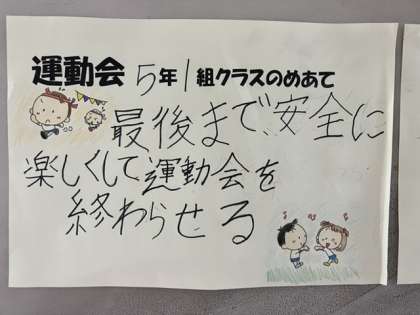 運動会 5年1組クラスのめあて
最後まで、安全に
楽しくして運動会を
終わらせる